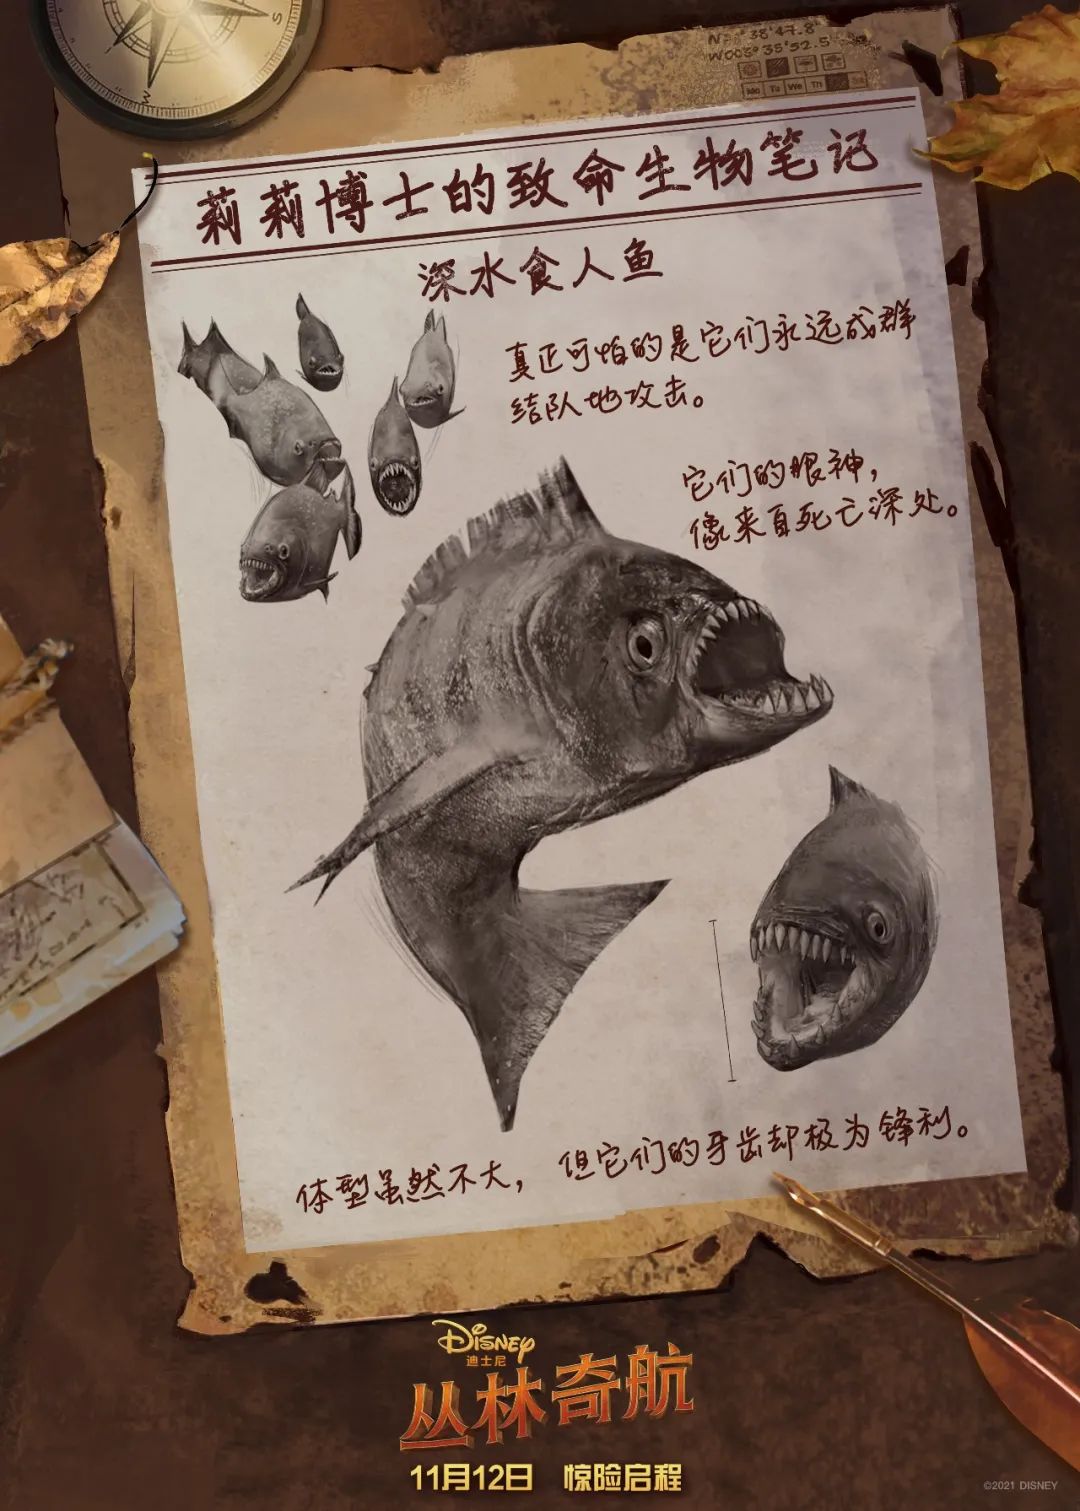 莉莉博士的致命生物笔记
深水食人鱼
真正可怕的是它们永远成群
结队地攻击。
它们的眼神，
像来自死亡深处。
体型虽然不大，但它们的牙齿却极为锋利。
Disney
迪士尼
丛林奇航
11月12日 惊险启程
©2021 DISNEY
Mo Tu We Th